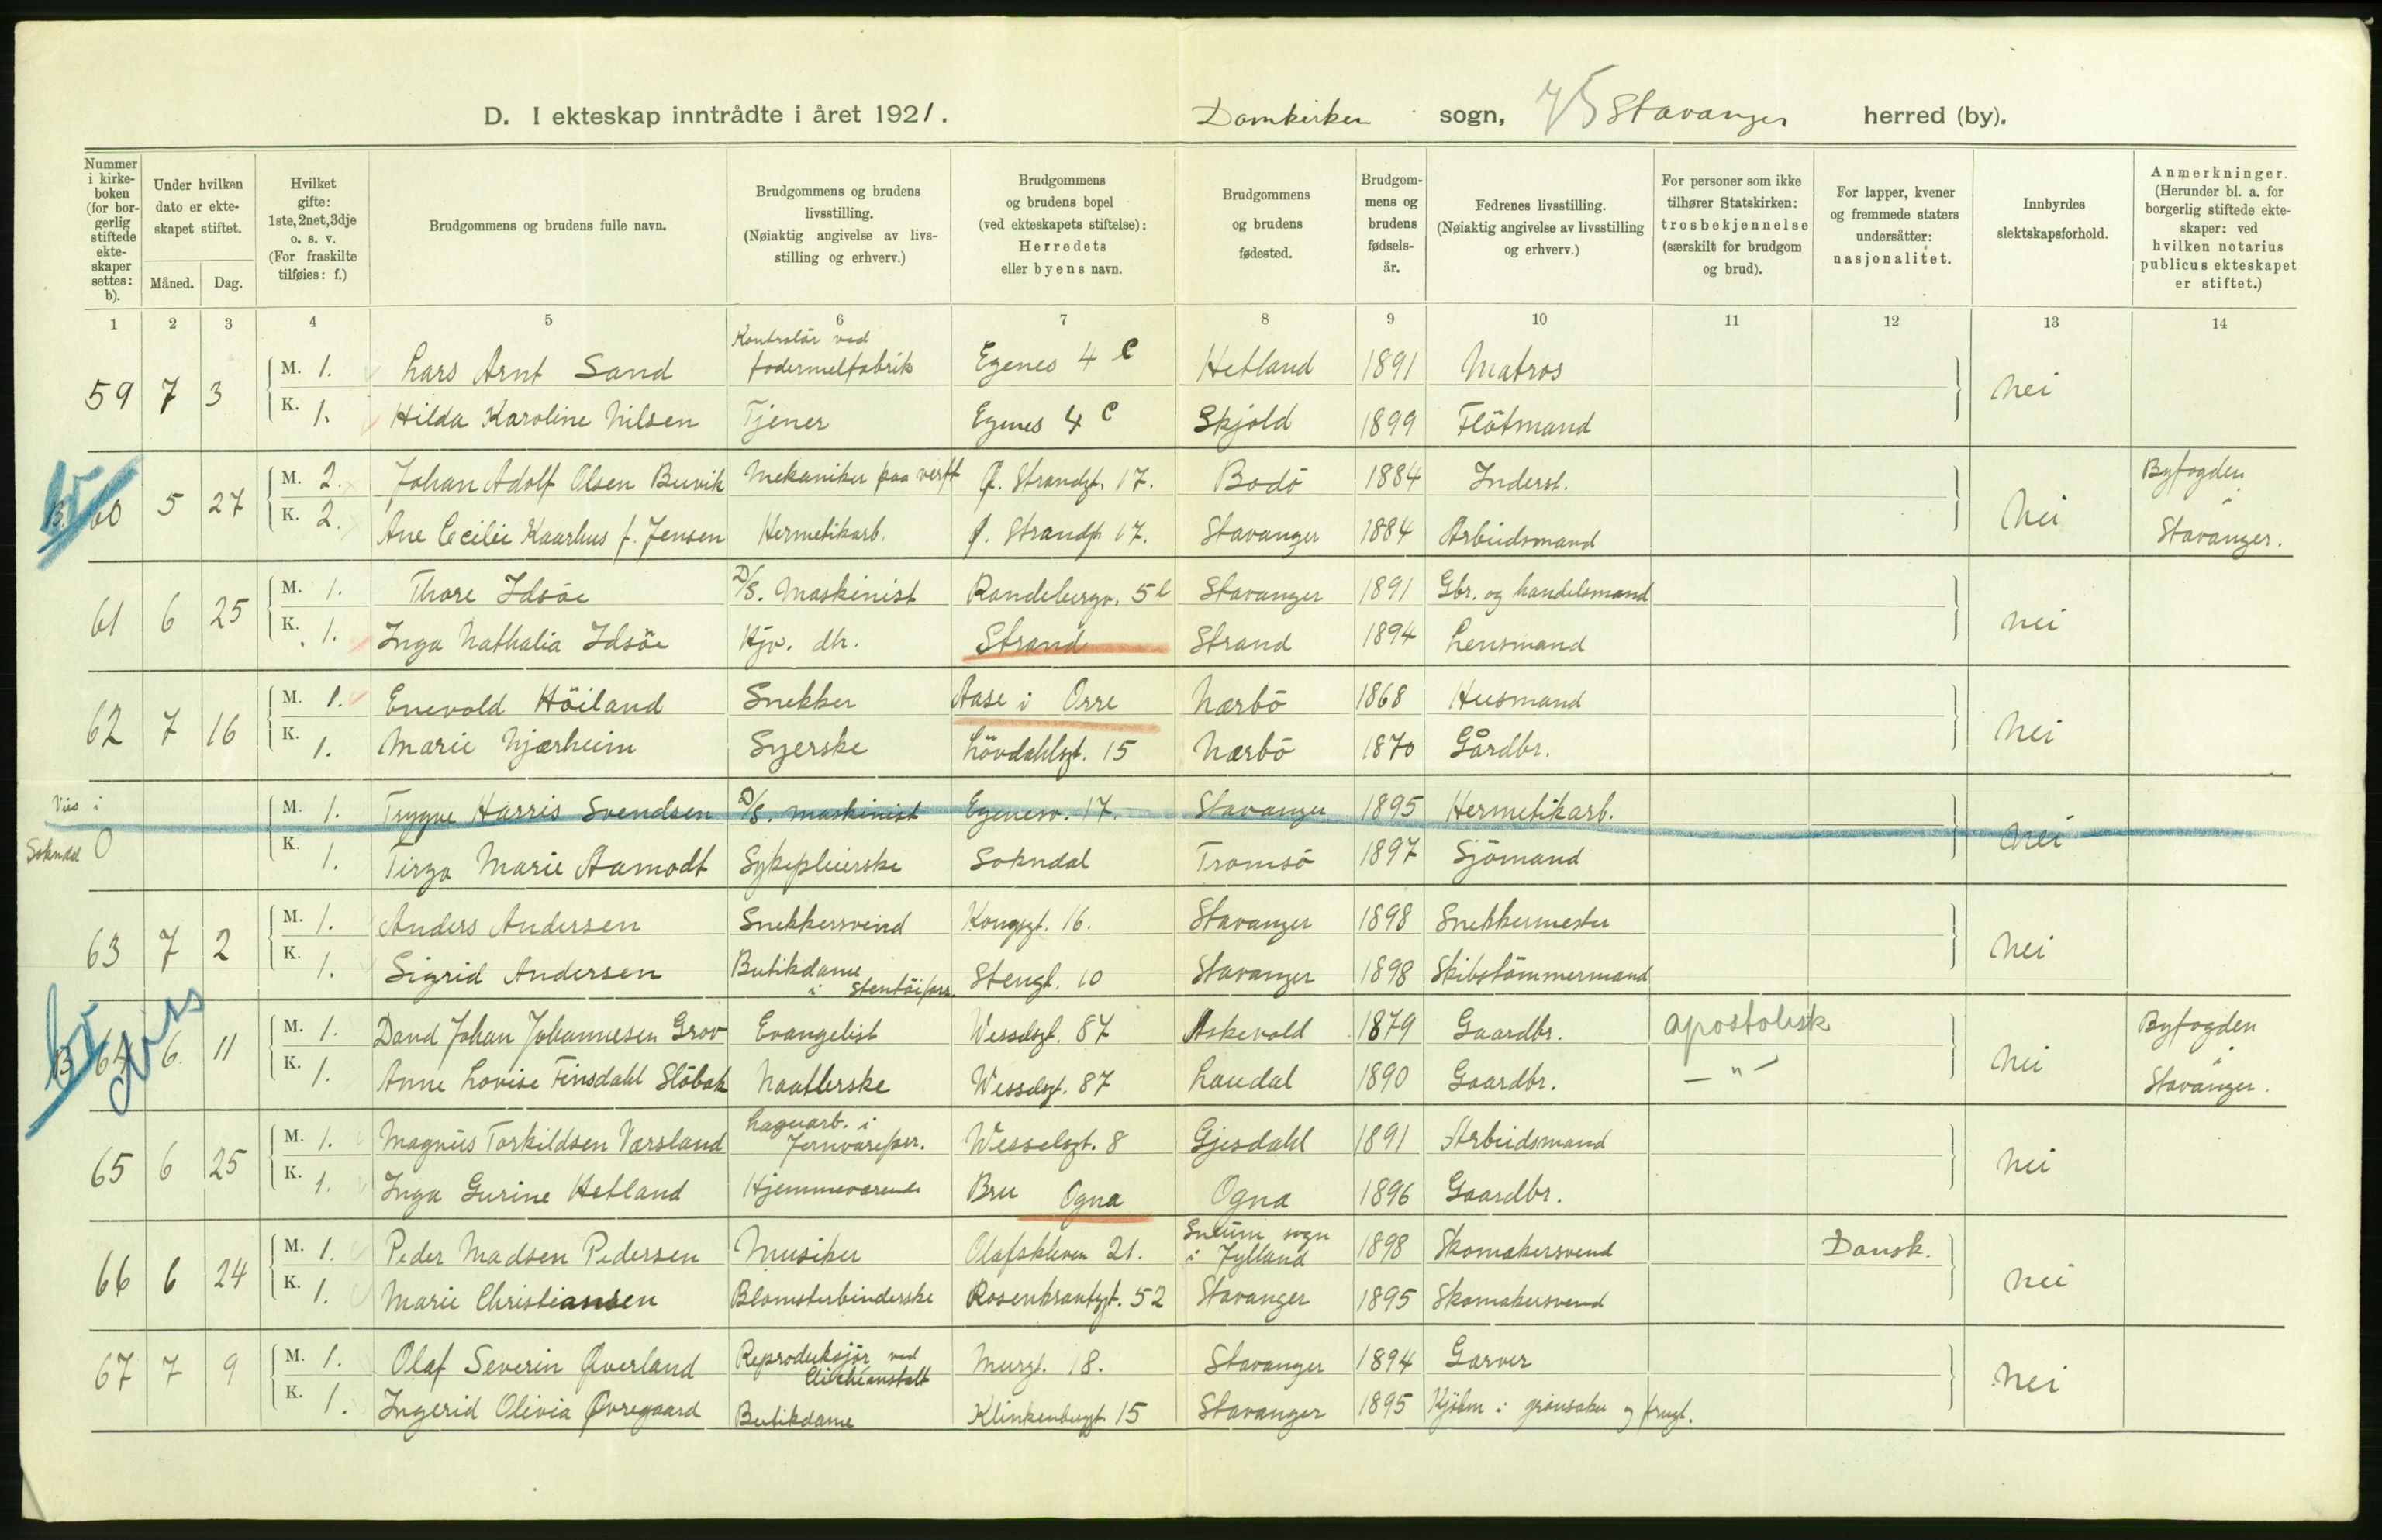 D. I ekteskap inntrådte i året 1921. Domkirken sogn, 75 Stavanger herred (by).
Nummer i kirkeboken (for borgerlig stiftede ekteskaper settes: b).
Under hvilken dato er ekteskapet stiftet. Måned. Dag.
Hvilket gifte: 1ste, 2net, 3dje o. s. v. (For fraskilte tilføies: f.)
Brudgommens og brudens fulle navn.
Brudgommens og brudens livsstilling. (Nøiaktig angivelse av livsstilling og erhverv.)
Brudgommens og brudens bopel (ved ekteskapets stiftelse): Herredets eller byens navn.
Brudgommens og brudens fødested.
Brudgommens og brudens fødselsår.
Fedrenes livsstilling. (Nøiaktig angivelse av livsstilling og erhverv.)
For personer som ikke tilhører Statskirken: trosbekjennelse (særskilt for brudgom og brud).
For lapper, kvener og fremmede staters undersåtter: nasjonalitet.
Innbyrdes slektskapsforhold.
Anmerkninger. (Herunder bl. a. for borgerlig stiftede ekteskaper: ved hvilken notarius publicus ekteskapet er stiftet.)
1 2 3 4 5 6 7 8 9 10 11 12 13 14
59 7 3 M. 1. Lars Arnt Sand Kontrolör ved fodermelfabrik Egenes 4 C Hetland 1891 Matros nei
K. 1. Hilda Karoline Nilsen Tjener Egenes 4 C Skjold 1899 Flötmand
B. 60 5 27 M. 2. Johan Adolf Olsen Buvik Mekaniker paa verft Ø. Strandgt. 17. Bodö 1884 Inderst. nei Byfogden i Stavanger.
K. 2. Ane Cecilie Kaarhus f. Jensen Hermetikarb. Ø. Strandgt. 17. Stavanger 1884 Arbeidsmand
61 6 25 M. 1. Thore Idsöe D/S. Maskinist Randebergv. 5 Stavanger 1891 Gbr. og handelsmand nei
K. 1. Inga Nathalia Idsöe Hjv. dtr. Strand Strand 1894 Lensmand
62 7 16 M. 1. Enevold Höiland Snekker Aase i Orre Nærbö 1868 Husmand nei
K. 1. Marie Njærheim Syerske Lövdahlsgt. 15 Nærbö 1870 Gårdbr.
Vies i Sokndal 0 M. 1. Trygve Harris Svendsen D/S. maskinist Egenesv. 17. Stavanger 1895 Hermetikarb. nei
K. 1. Tirza Marie Aamodt Sykepleierske Sokndal Tromsö 1897 Sjömand
63 7 2 M. 1. Anders Andersen Snekkersvend Kongsgt. 16. Stavanger 1898 Snekkermester nei
K. 1. Sigrid Andersen Butikdame i Stentöiforr. Stengt. 10 Stavanger 1898 Skibstömmermand
B. 64 6. 11 M. 1. David Johan Johannesen Grov Evangelist Wesselsgt. 87 Askevold 1879 Gaardbr. apostolisk nei Byfogden i Stavanger.
K. 1. Anne Lovise Finsdahl Slöbak Naatlerske Wesselsgt. 87 Laudal 1890 Gaardbr. — " —
65 6 25 M. 1. Magnus Torkildsen Værsland Lagerarb. i Jernvareforr. Wesselsgt. 8 Gjesdahl 1891 Arbeidsmand nei
K. 1. Inga Gurine Hetland Hjemmeværende Bru Ogna Ogna 1896 Gaardbr.
66 6 24 M. 1. Peder Madsen Pedersen Musiker Olafskleven 21. Sneum sogn i Jylland 1898 Skomakersvend Dansk. nei
K. 1. Marie Christiansen Blomsterbinderske Rosenkrantzgt. 52 Stavanger 1895 Skomakersvend
67 7 9 M. 1. Olaf Severin Øverland Reproduksjör ved Clichéanstalt Murgt. 18. Stavanger 1894 Garver nei
K. 1. Ingerid Olivia Øvregaard Butikdame Klinkenbergt. 15 Stavanger 1895 Kjöbm i grönsaker og frugt.